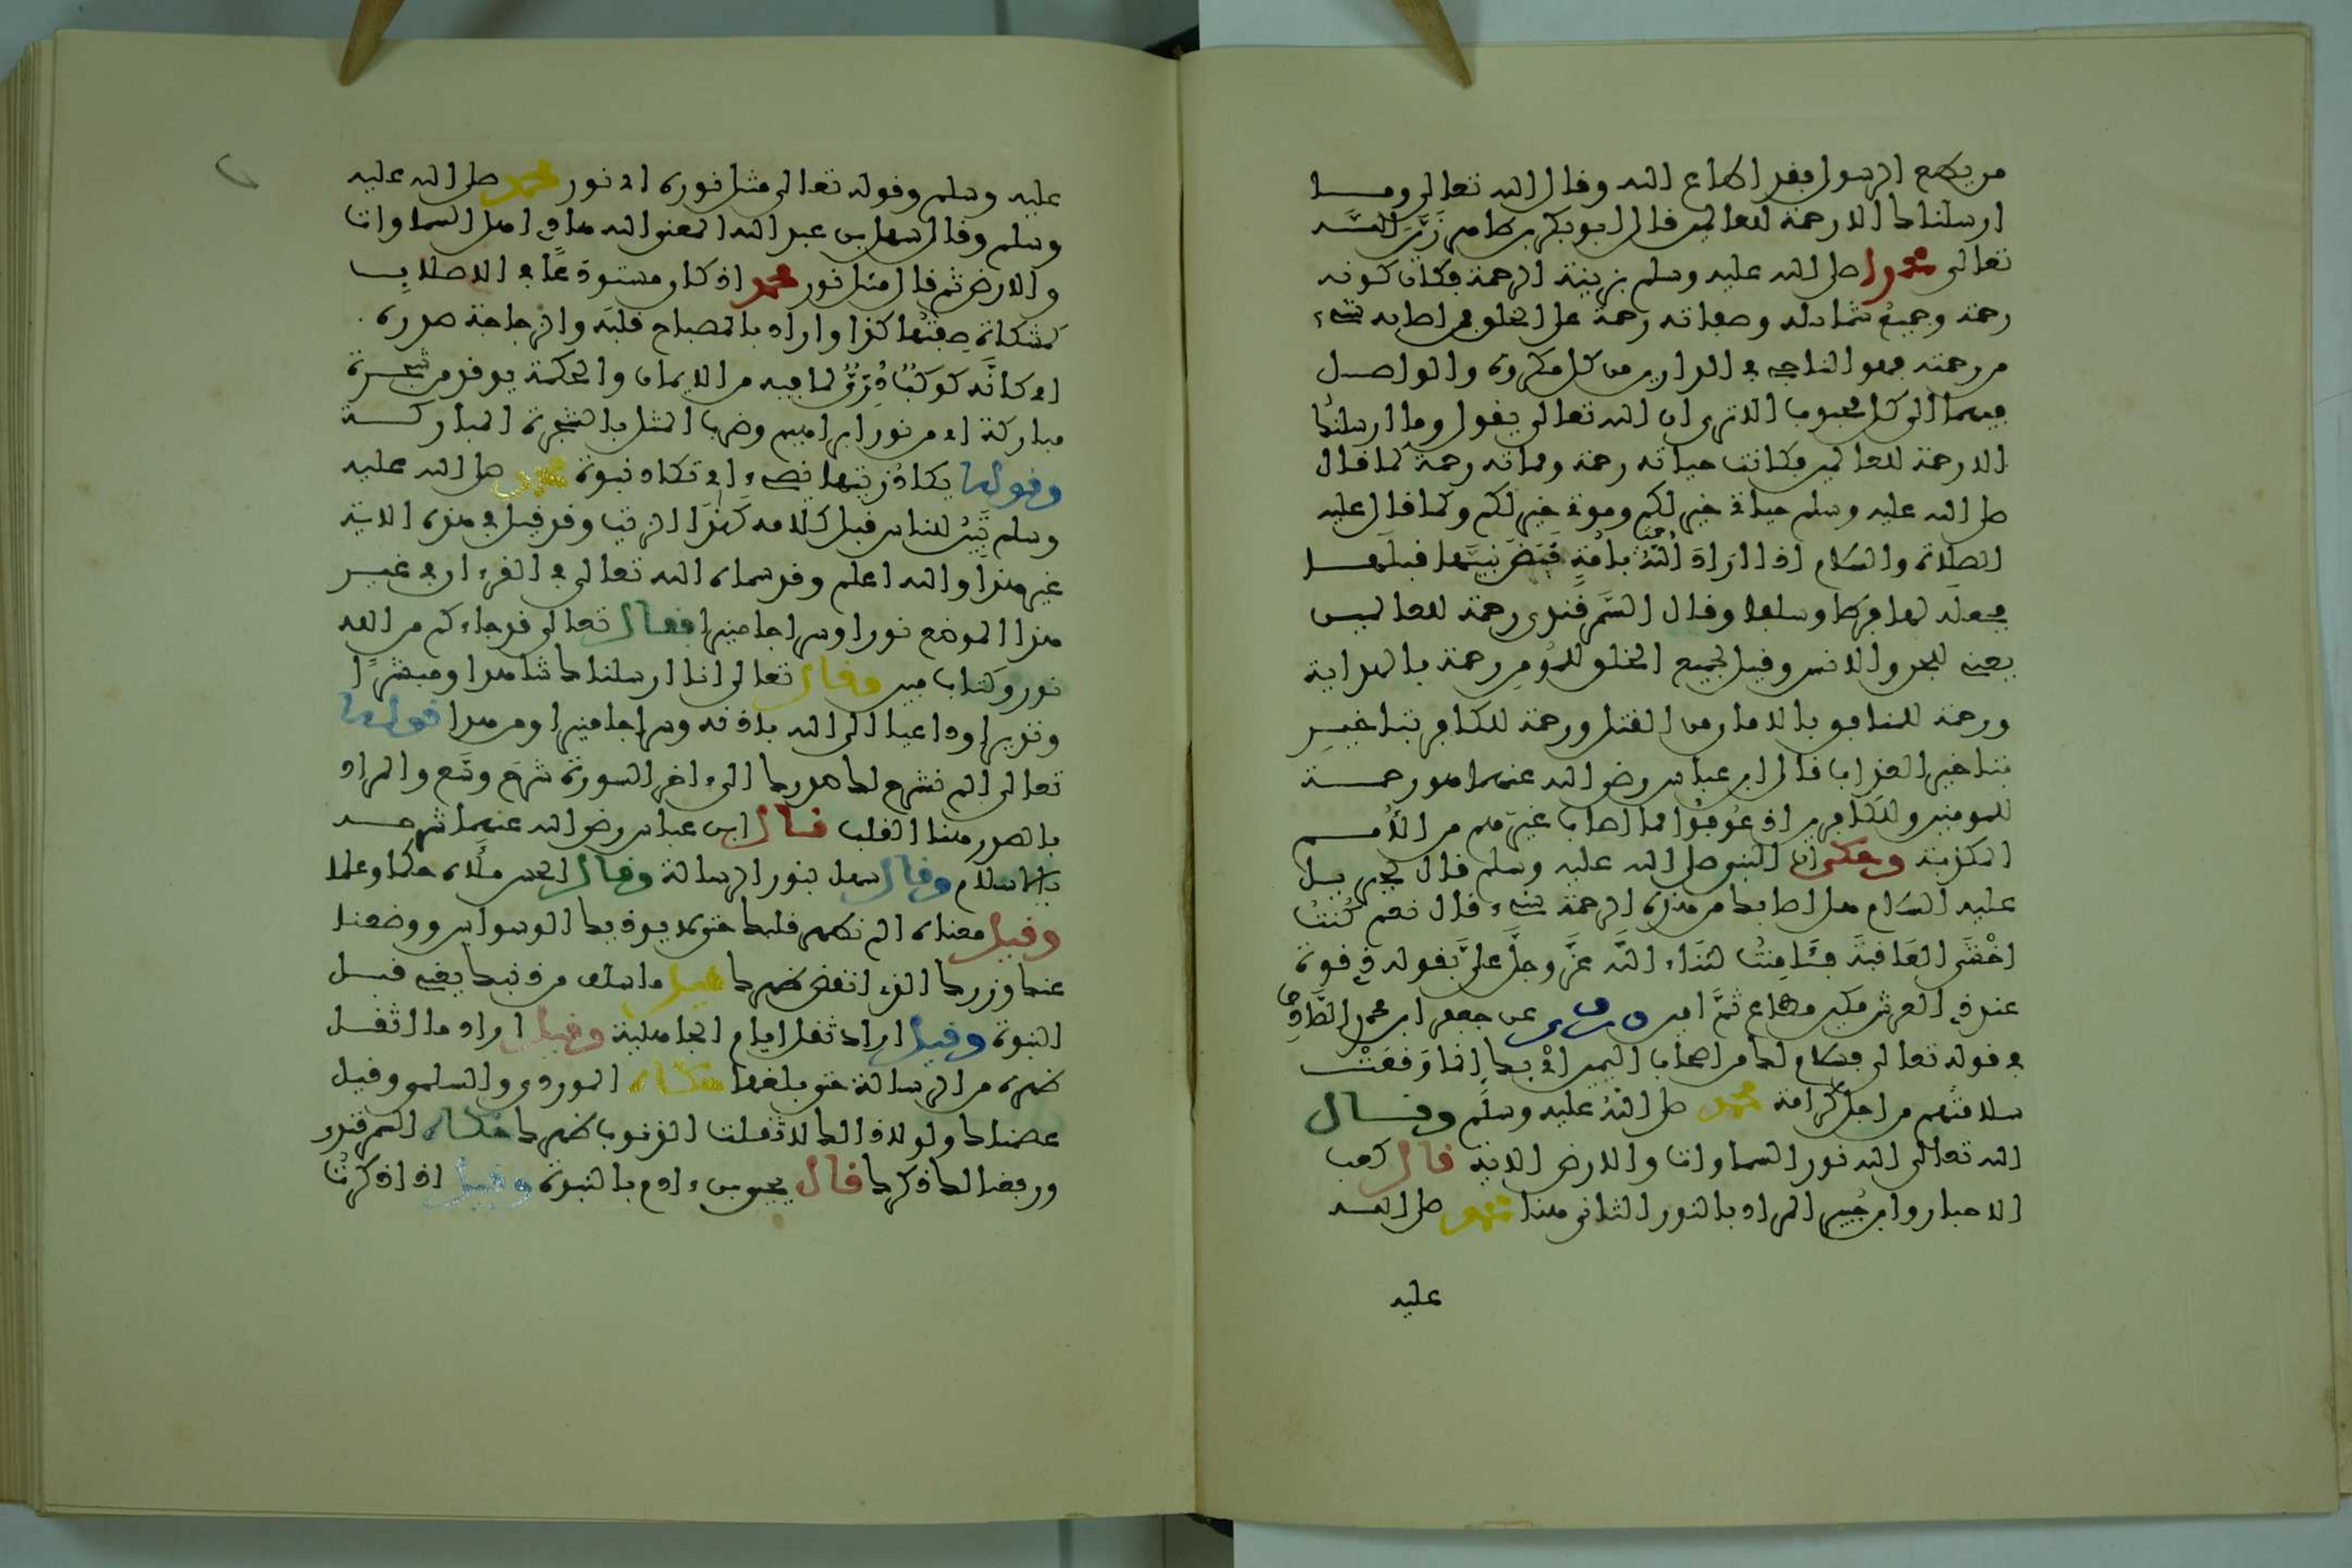 من يطع الرسول فقد اطاع الله وقال الله تعالى وما
ارسلناك الا رحمة للعالمين قال ابو بكر بن طاهر زَيَّن اللــه
تعالى محمدا صلى الله عليه وسلم بزينة الرحمة فكان كونه
رحمة وجميعُ شمائله وصفاته رحمة على الخلق فمن اصابه شيء
من رحمته فهو الناجي في الدارين من كل مكروه والواصل
فيهما الى كل محبوب الا ترى ان الله تعالى يقول وما ارسلناك
الا رحمة للعالمين فكانت حياته رحمة ومماته رحمة كما قال
صلى الله عليه وسلم حياتي خير لكم وموتي خير لكم وكما قال عليه
الصلاة والسلام اذا ارَادَ اللهُ رحمة بامَّةٍ قَبَضَ نبيَّها قبلَها
فجعله لها فرطا وسلفا وقال السَّمرقندي رحمة للعالمين
يعني للجن والانس وقيل لجميع الخلق للمُومِن رحمة بالهداية
ورحمة للمنافق بالامان من القتل ورحمة للكافر بتاخيرِ
بتاخير العذاب قال ابن عباس رضي الله عنهما هو رحمــة
للمومنين وللكافرين اذ عُوفُوا مما اصاب غيرَهم من الأُمـم
المكذبة وحكى ان النبي صلى الله عليه وسلم قال لجبريـل
عليه السلام هل اصابك من هذه الرحمة شيء قال نعم كُنتُ
اخْشَى العَاقبةَ فَأَمِنْتُ لثناء اللَّه عزَّ وجلَّ عليَّ بقوله ذي قوة
عند ذي العرش مكين مطاع ثمَّ امين وروي عن جعفر ابن محمد الصَّادِق
في قوله تعالى فسلام لك من اصحاب اليمين ايْ بك انما وَقعَتْ
سلامتُهم من اجل كرامة محمد صلى اللهُ عليه وسلَّم وقــال
الله تعالى الله نور السماوات والارض الاية قال كعب
الاحبار وابن جُبير المراد بالنور الثاني هنا محمد صلى اللــه
عليه
عليه وسلم وقوله تعالى مثل نوره اي نور محمد صلى الله عليه
وسلم وقال سهل بن عبد الله المعنى الله هادي اهل السماوات
والارض ثم قال مثل نور محمد اذ كان مستودَعًا في الاصلابِ
كمشكاة صِفتُها كذا واراد بالمصباح قلبَه والزجاجة صدره
اي كانَّه كوكبٌ دُرِّيٌّ لما فيه من الايمان والحكمة يوقد من شجــرة
مباركة اي من نور ابراهيم وضرب المثل بالشجرة المباركــة
وقوله يكادُ زيتها يضيء اي تكاد نبوة محمد صلى الله عليه
وسلم تَبِينُ للناس قبل كلامه كهَذَا الزيت وقد قيل في هذه الاية
غير هذا والله اعلم وقد سماه الله تعالى في القرءان في غيــر
هذا الموضع نورا وسراجا منيرا فقال تعالى قد جاءكم من الله
نور وكتاب مبين وقال تعالى انا ارسلناك شاهدا ومبشرًا
ونذيرا وداعيا الى الله باذنه وسراجا منيرا ومن هذا قوله
تعالى الم نشرح لك صدرك الى ءاخر السورة شَرَحَ وسَّع والمراد
بالصدر هنا القلب قال ابن عباس رضي الله عنهما شرحــه
بالاسلام وقال سهل بنور الرسالة وقال الحسن ملأه حكما وعلما
وقيل معناه الم نطهر قلبك حتى لا يوذيك الوسواس ووضعنا
عنك وزرك الذي انقض ظهرك قيل ما سلف من ذنبك يعني قبــل
النبوة وقيل اراد ثقل ايام الجاهلية وقيل اراد ما اثقــل
ظهره من الرسالة حتى بلغها حكاه الموردي والسلمي وقيل
عصمناك ولولا ذالك لاثقلت الذنوب ظهرك حكاه السمرقندي
ورفعنا لك ذكرك قال يحيى بن ءادم بالنبوة وقيل اذا ذكرتُ